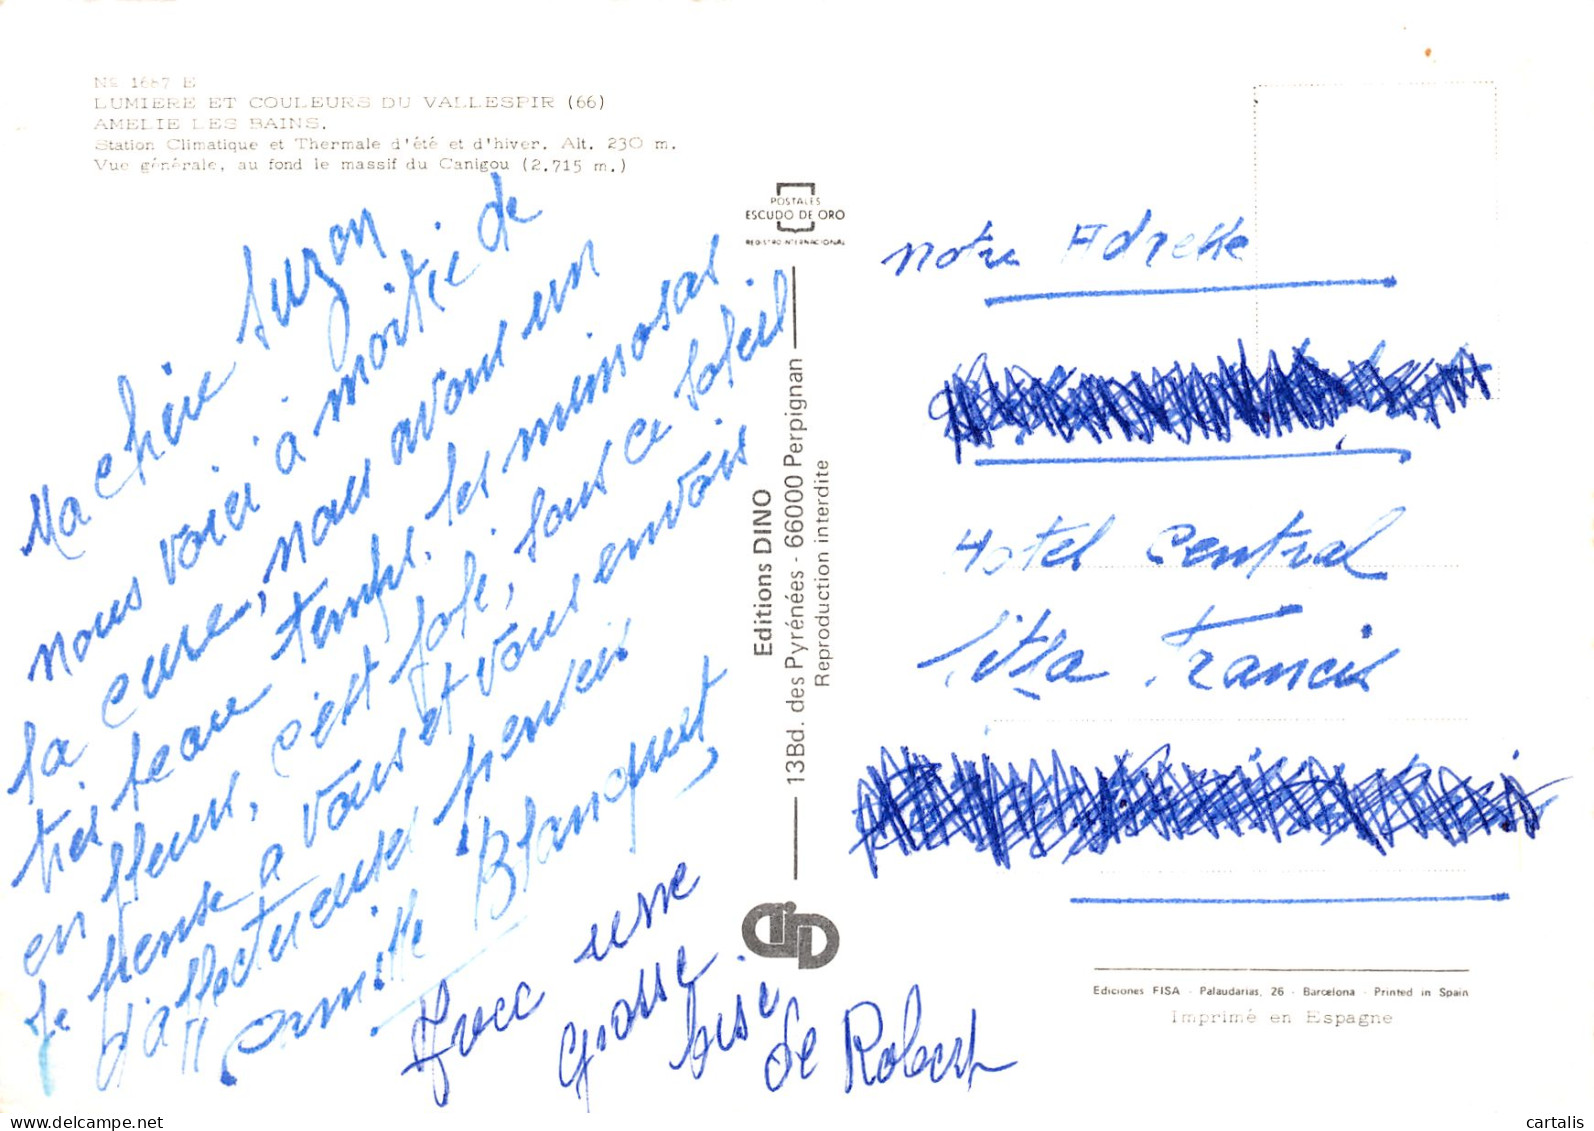 Nº 1687 E
LUMIERE ET COULEURS DU VALLESPIR (66)
AMELIE LES BAINS.
Station Climatique et Thermale d'été et d'hiver. Alt. 230 m.
Vue générale, au fond le massif du Canigou (2.715 m.)
Ma chère Suzon
nous voici à moitié de
la cure, nous avons un
très beau temps. les mimosas
en fleurs, c'est joli, sous ce soleil
Je pense a vous et vous envois
d'affectueuses pensées
Camille Blanquet,
Avec une
grosse
bise
de Robert
POSTALES
ESCUDO DE ORO
REGISTRO INTERNACIONAL
Editions DINO
13Bd. des Pyrénées - 66000 Perpignan
Reproduction interdite
notre Adresse
Hotel Central
Villa Francis
Ediciones FISA - Palaudarias, 26 - Barcelona - Printed in Spain
Imprimé en Espagne
cartalis